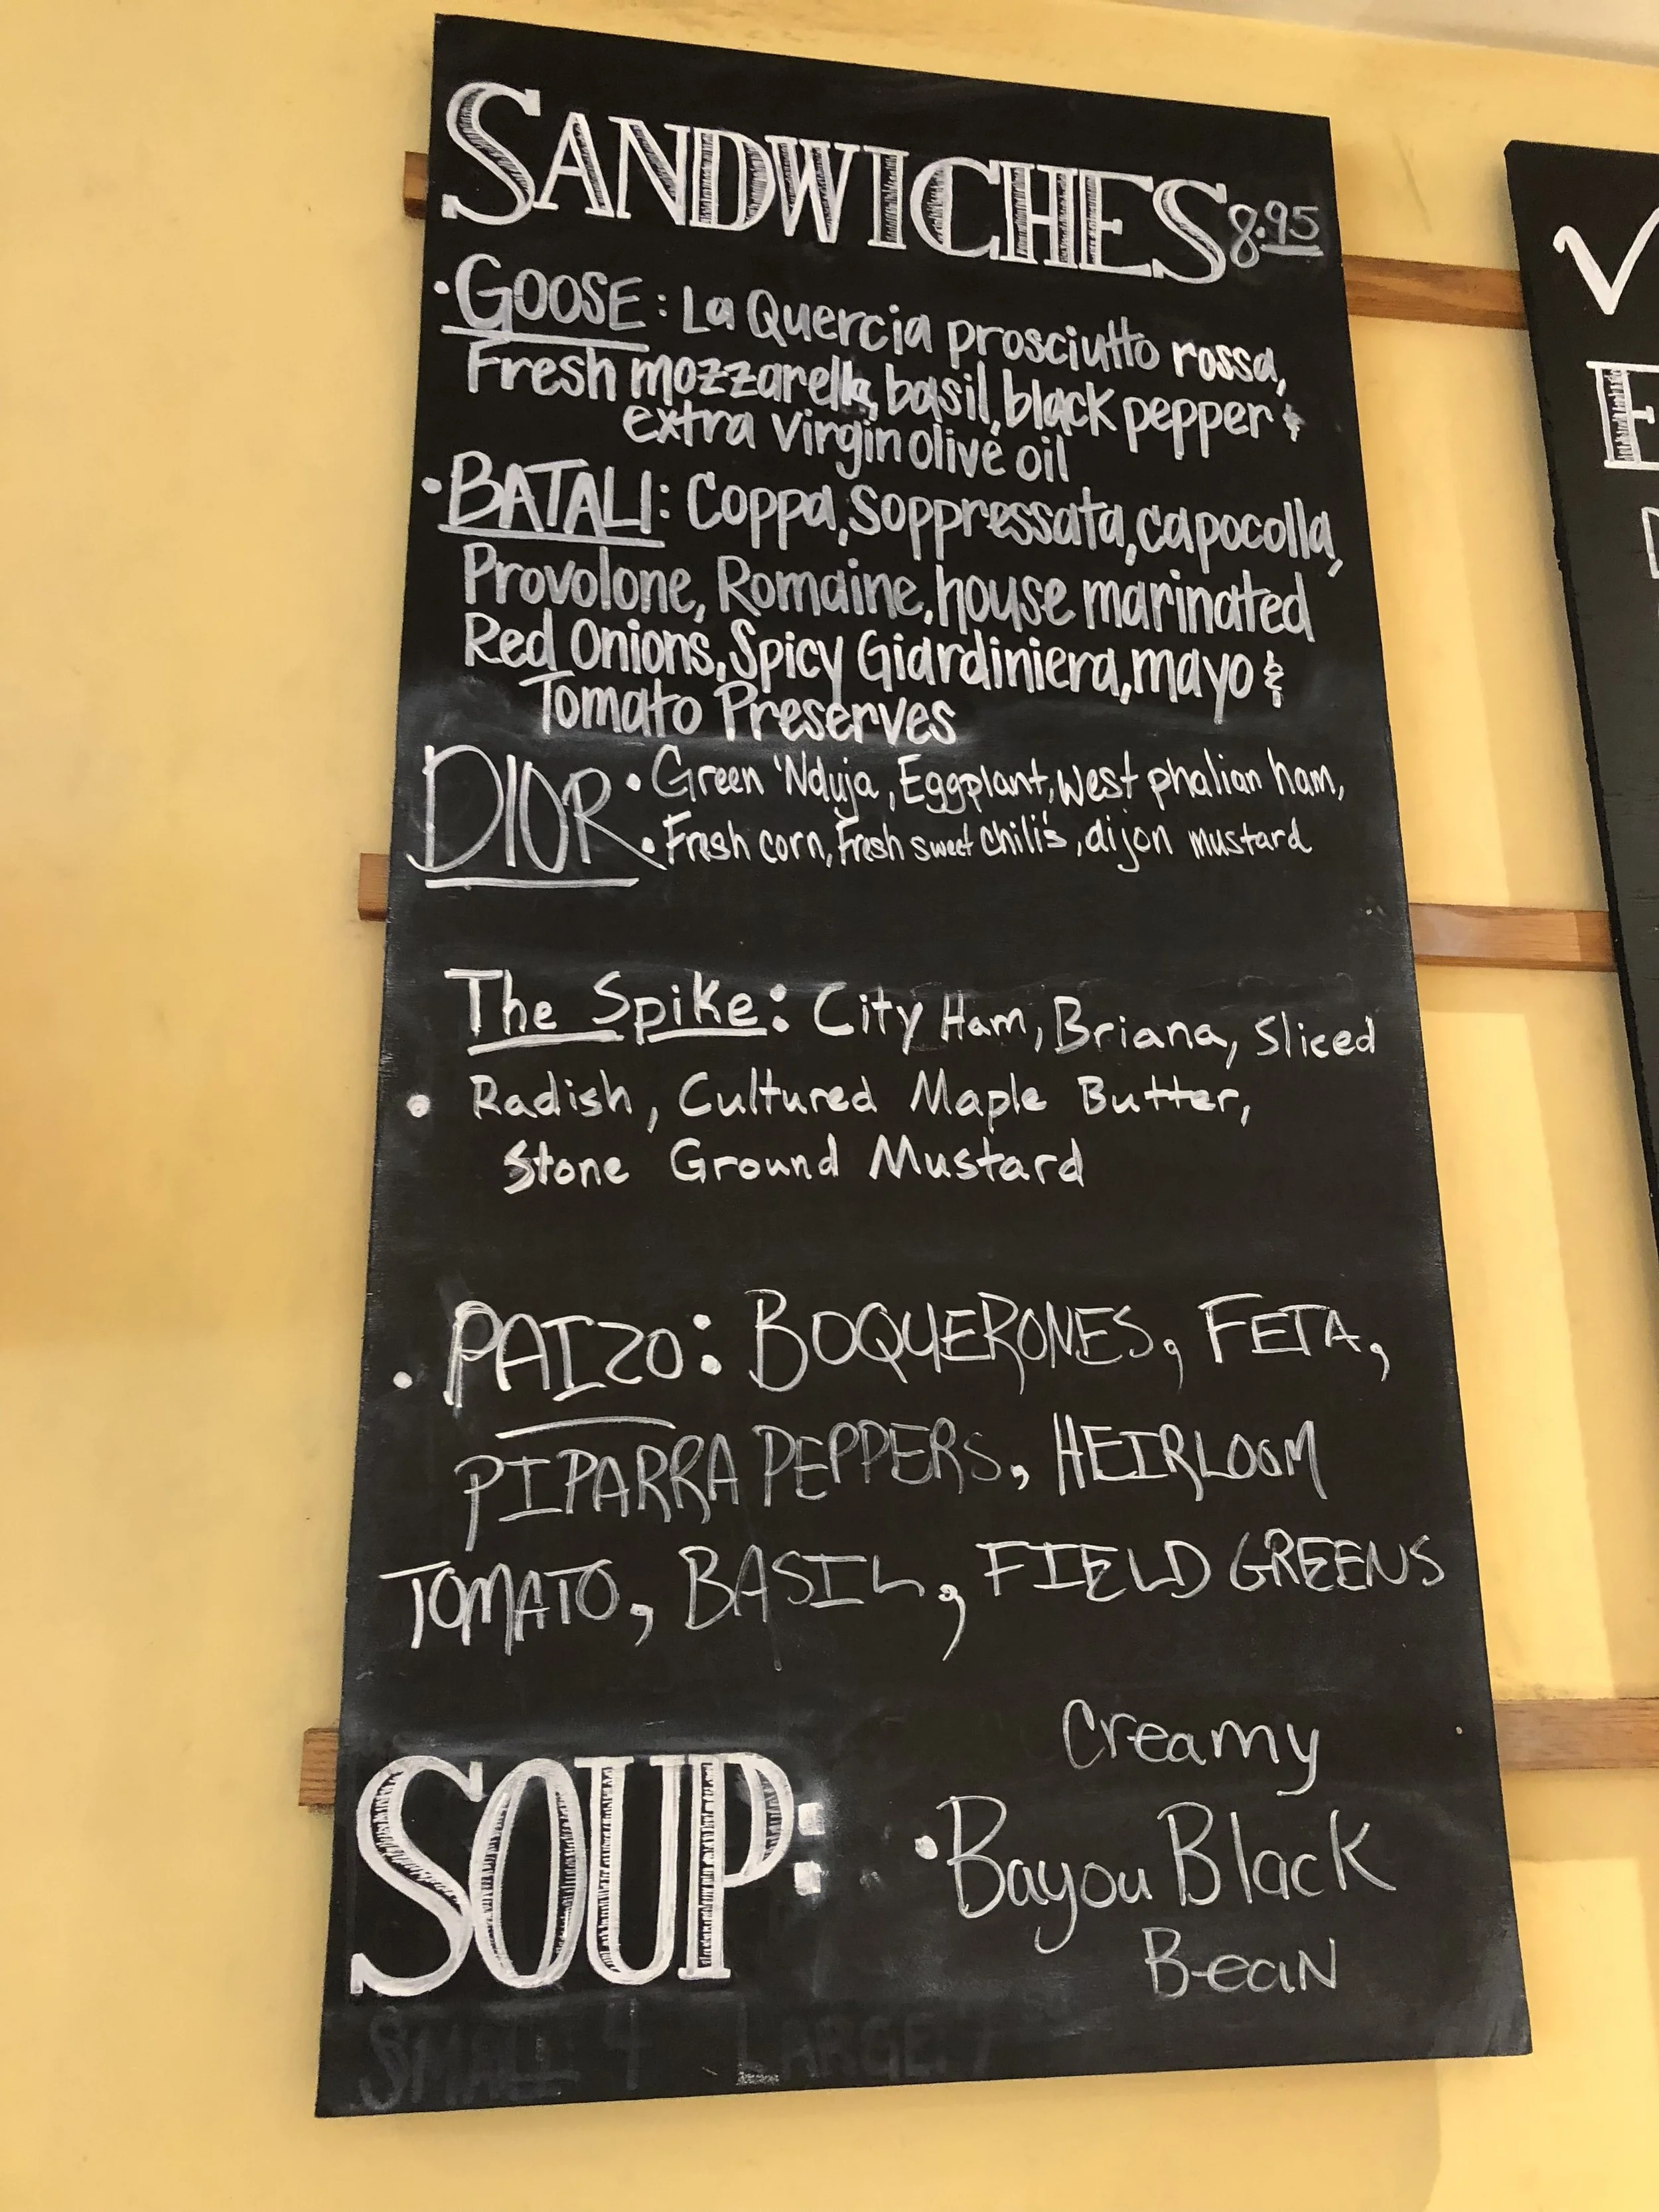 SANDWICHES 8.95
• GOOSE: La Quercia prosciutto rossa,
Fresh mozzarella, basil, black pepper &
extra virgin olive oil
• BATALI: Coppa, Soppressata, capocolla,
Provolone, Romaine, house marinated
Red Onions, Spicy Giardiniera, mayo &
Tomato Preserves
DIOR • Green 'Nduja, Eggplant, West phalian ham,
• Fresh corn, Fresh sweet chili's, dijon mustard
The Spike: City Ham, Briana, Sliced
• Radish, Cultured Maple Butter,
Stone Ground Mustard
• PAIZO: BOQUERONES, FETA,
PIPARRA PEPPERS, HEIRLOOM
TOMATO, BASIL, FIELD GREENS
SOUP:
Creamy
• Bayou Black
Bean
SMALL 4 LARGE 7